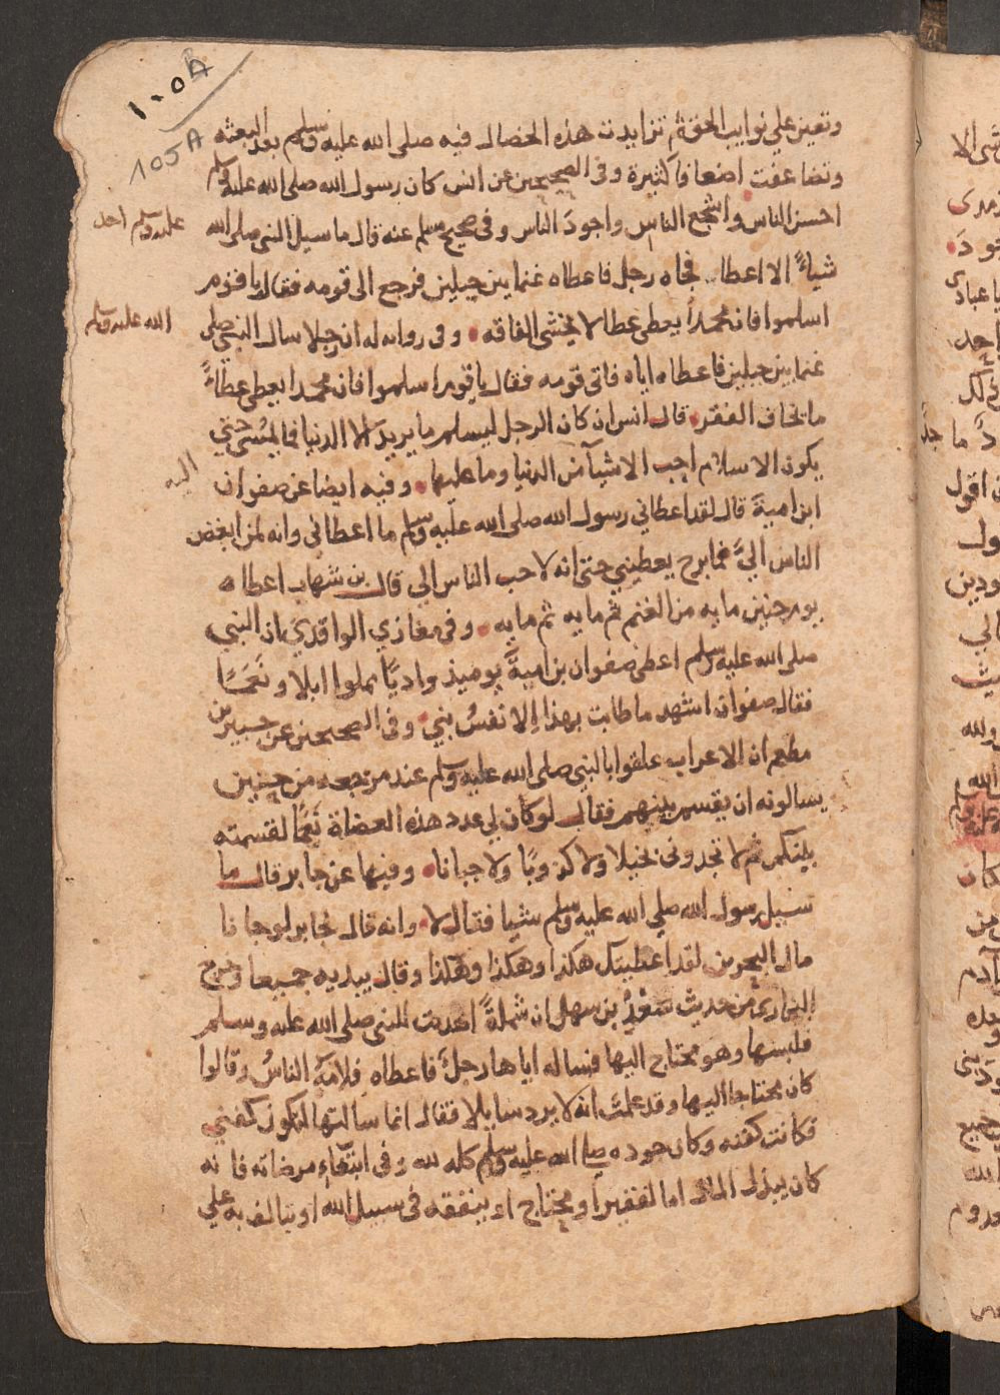 ١٠٥A
105A
وتعين علي نوايب الحق ثم تزايدت هذه الخصال فيه صلى الله عليه وسلم بعد البعثه
وتضاعفت اضعافا كثيرة وفى الصحيحين عن انس كان رسول الله صلى الله عليه وسلم
احسن الناس واشجع الناس واجود الناس وفى صحيح مسلم عنه قال ما سيل النبى صلى الله
عليه وسلم احد
شياءً الا اعطا فجاه رجل فاعطاه غنما بين جبلين فرجع الى قومه فقال يا قوم
اسلموا فانه محمداً يعطى عطا لا يخشى الفاقه وفى روايه له ان رجلا سال النبى صلى
الله عليه وسلم
غنما بين جبلين فاعطاه اياه فاتى قومه فقال يا قوم اسلموا فان محمدا يعطى عطاءً
ما يخاف الفقر قال انس ان كان الرجل ليسلم ما يريد الا الدنيا فما يمسى حتي
يكون الاسلام احب الاشيآ من الدنيا وما عليها وفيه ايضا عن صفوان
اليه
ابن امية قال لقد اعطاني رسول الله صلى الله عليه وسلم ما اعطانى وانه لمن ابغض
الناس اليَّ فما برح يعطيني حتى انه لاحب الناس الي قال بن شهاب اعطاه
يوم حنين مايه من الغنم ثم مايه ثم مايه وفى مغازي الواقدي ان النبي
صلى الله عليه وسلم اعطى صفوان بن اميةَّ يوميذ واديًا مملوا ابلا ونَعَمًا
فقال صفوان اشهد ما طابت بهذا الا نفسُ بني وفى الصحيحين عن جبير بن
مطعم ان الاعراب علقوا بالنبى صلى الله عليه وسلم عند مرجعه من حنين
يسالونه ان يقسم بينهم فقال لو كان لي عدد هذه العضاة نَعمًا لقسمته
بينكم ثم لا تجدونى بخيلا ولا كذوبًا ولا جبانا وفيها عن جابر قال ما
سيل رسول الله صلي الله عليه وسلم شيا فقال لا وانه قال لجابر لو جانا
مال البحرين لقد اعطيتك هكذا وهكذا وهكذا وقال بيديه جميعا وخرج
البخارى من حديث سَعْدٍ بن سهل ان شملةً اهدت للنبى صلى الله عليه وسلم
فلبسها وهو محتاج اليها فساله اياها رجلٌ فاعطاه فلامَهُ الناسُ وقالوا
كان محتاجا اليها وقد علمت انه لا يرد سايلا فقال انما سالتها لتكون كفني
فكانت كفنه وكان جوده صلى الله عليه وسلم كله لله وفى ابتغاءِ مرضاته فانه
كان يبذل المال اما لفقير او محتاج او ينفقه فى سبيل الله او يتالف به علي